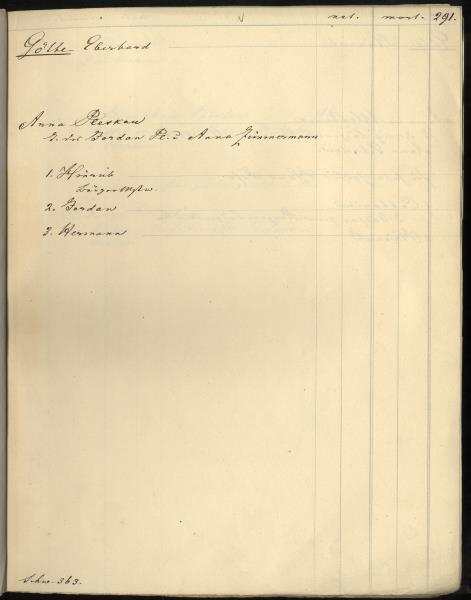 nat. mort. 291.
Götte Eberhard
Anna Pleskau
T. des Jordan Pl. u Anna Zimmermann
1. Hinrich
Bürger
2. Jordan
3. Hermann
Schw. 363.